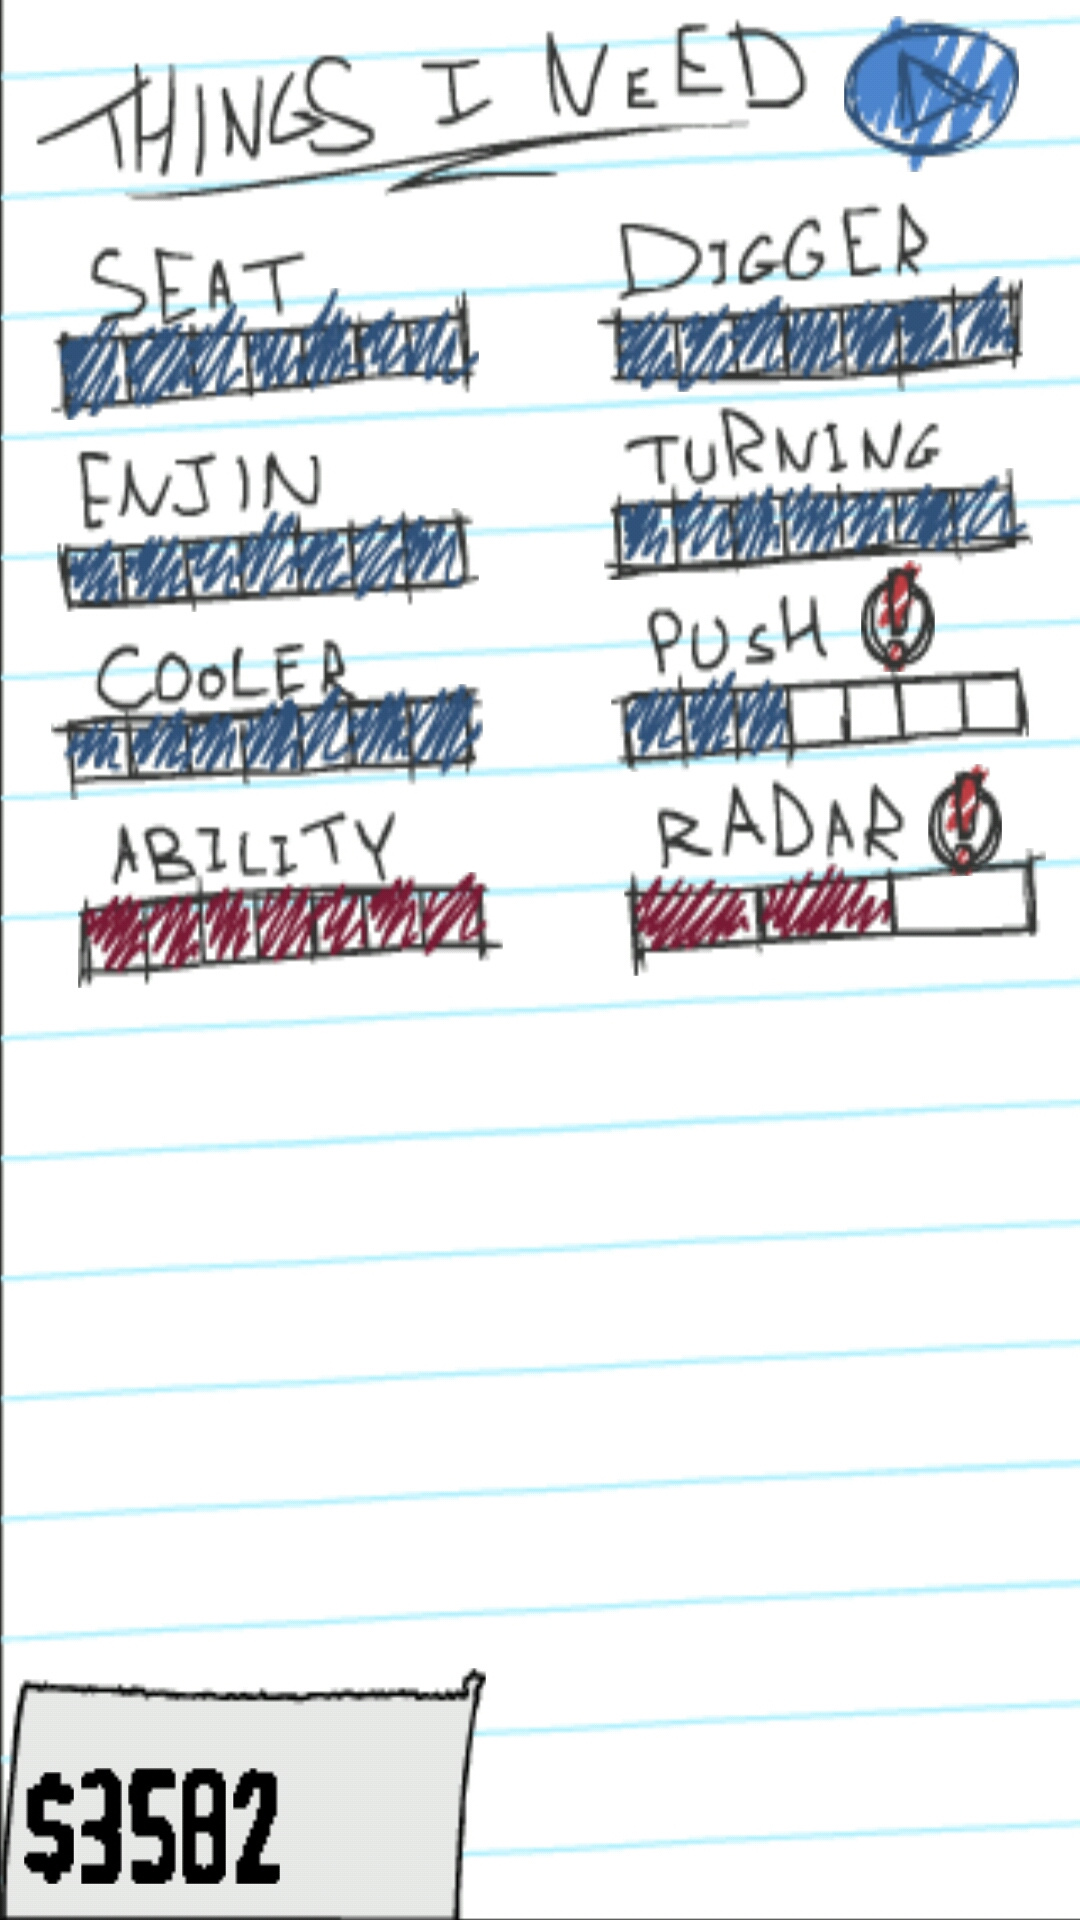 THINGS I NEED
SEAT
DIGGER
ENJIN
TURNING
COOLER
PUSH !
ABILITY
RADAR !
$3582